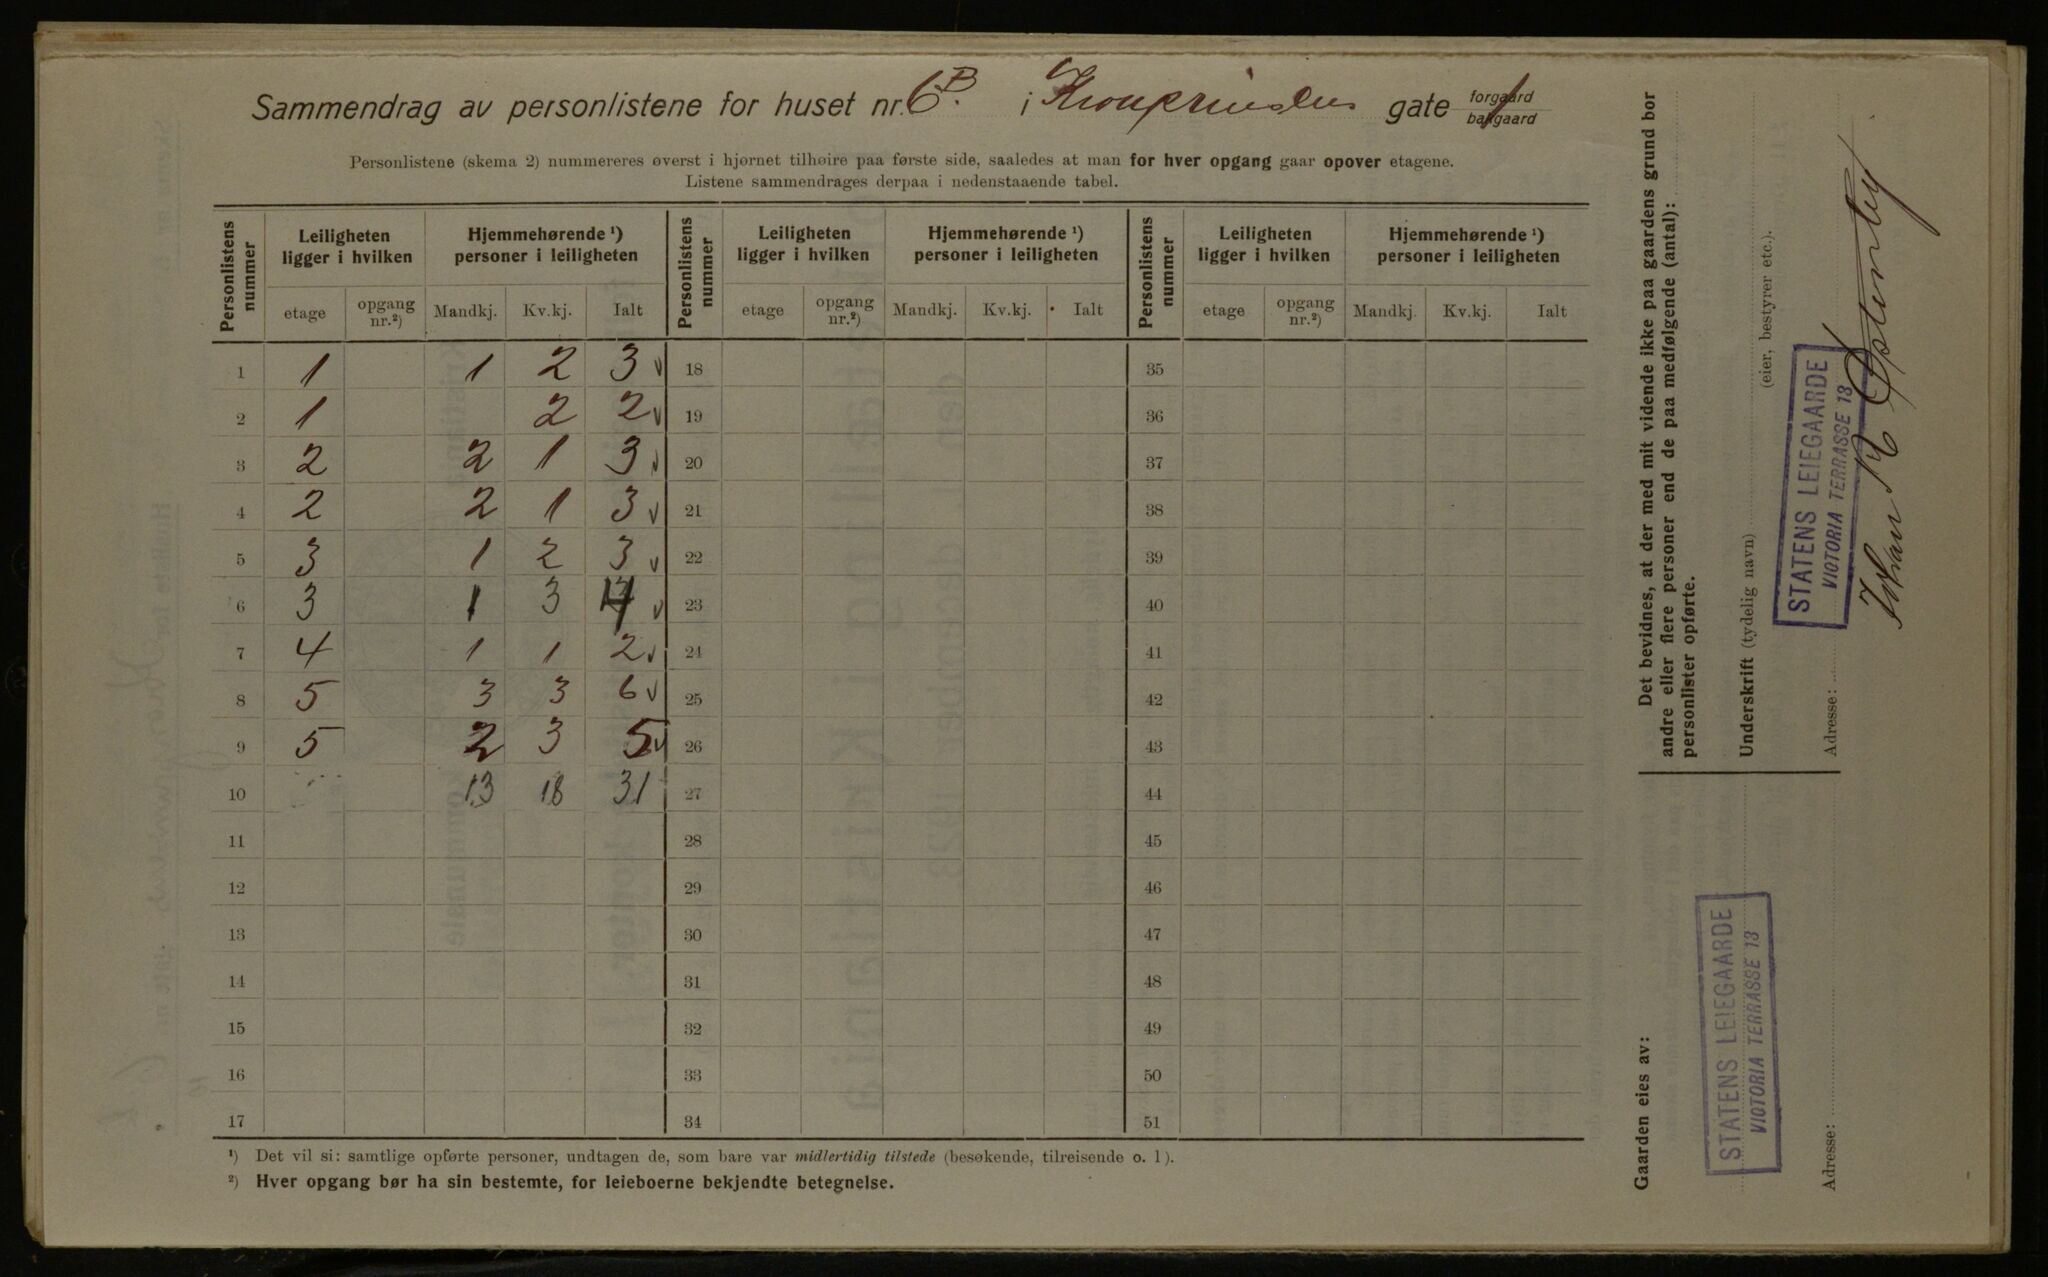 Sammendrag av personlistene for huset nr. 6B. i Kronprinsens gate forgaard
bakgaard
Personlistene (skema 2) nummereres øverst i hjørnet tilhøire paa første side, saaledes at man for hver opgang gaar opover etagene.
Listene sammendrages derpaa i nedenstaaende tabel.
Personlistens nummer Leiligheten ligger i hvilken Hjemmehørende ¹) personer i leiligheten Personlistens nummer Leiligheten ligger i hvilken Hjemmehørende ¹) personer i leiligheten Personlistens nummer Leiligheten ligger i hvilken Hjemmehørende ¹) personer i leiligheten
etage opgang nr.²) Mandkj. Kv.kj. Ialt etage opgang nr.²) Mandkj. Kv.kj. Ialt etage opgang nr.²) Mandkj. Kv.kj. Ialt
1 1 1 2 3 v 18 35
2 1 2 2 v 19 36
3 2 2 1 3 v 20 37
4 2 2 1 3 v 21 38
5 3 1 2 3 v 22 39
6 3 1 3 4 v 23 40
7 4 1 1 2 v 24 41
8 5 3 3 6 v 25 42
9 5 2 3 5 v 26 43
10 13 18 31 27 44
11 28 45
12 29 46
13 30 47
14 31 48
15 32 49
16 33 50
17 34 51
¹) Det vil si: samtlige opførte personer, undtagen de, som bare var midlertidig tilstede (besøkende, tilreisende o. l).
²) Hver opgang bør ha sin bestemte, for leieboerne bekjendte betegnelse.
Det bevidnes, at der med mit vidende ikke paa gaardens grund bor
andre eller flere personer end de paa medfølgende (antal):
personlister opførte.
Underskrift (tydelig navn)
(eier, bestyrer etc.).
STATENS LEIEGAARDE
VICTORIA TERRASSE 13
Adresse:
Gaarden eies av:
STATENS LEIEGAARDE
VICTORIA TERRASSE 13
Adresse: